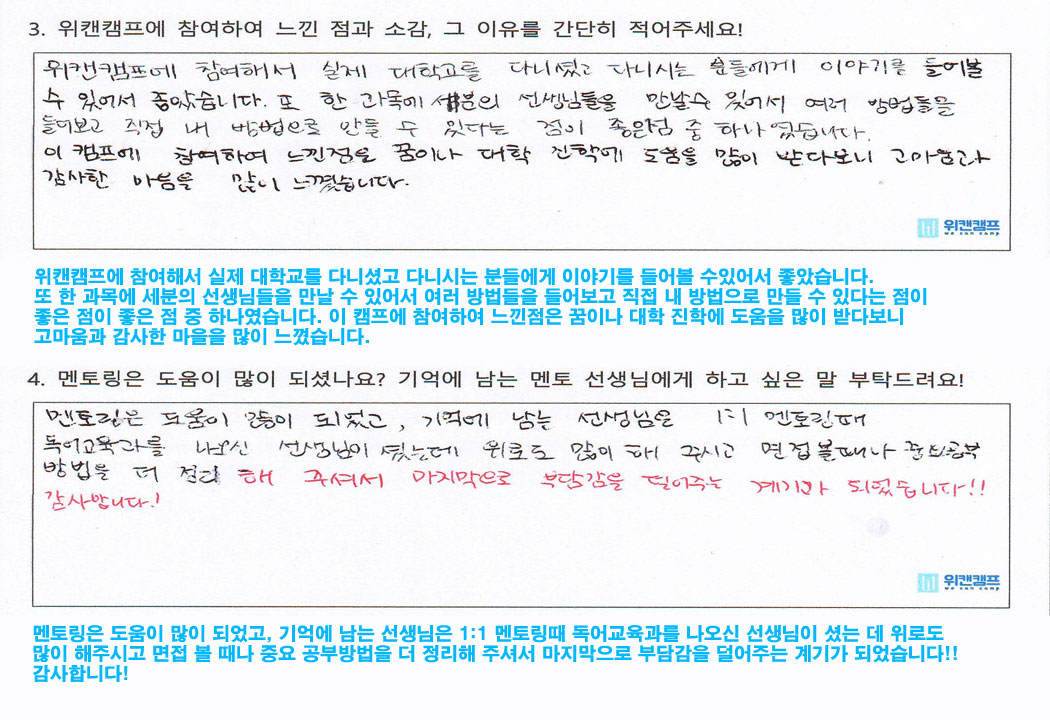 3. 위캔캠프에 참여하여 느낀 점과 소감, 그 이유를 간단히 적어주세요!
위캔캠프에 참여해서 실제 대학교를 다니셨고 다니시는 분들에게 이야기를 들어볼
수 있어서 좋았습니다. 또 한 과목에 세분의 선생님들을 만날수 있어서 여러 방법들을
들어보고 직접 내 방법으로 만들 수 있다는 점이 좋은점 중 하나였습니다.
이 캠프에 참여하여 느낀점은 꿈이나 대학 진학에 도움을 많이 받다보니 고마움과
감사한 마음을 많이 느꼈습니다.
위캔캠프
we can camp
위캔캠프에 참여해서 실제 대학교를 다니셨고 다니시는 분들에게 이야기를 들어볼 수있어서 좋았습니다.
또 한 과목에 세분의 선생님들을 만날 수 있어서 여러 방법들을 들어보고 직접 내 방법으로 만들 수 있다는 점이
좋은 점이 좋은 점 중 하나였습니다. 이 캠프에 참여하여 느낀점은 꿈이나 대학 진학에 도움을 많이 받다보니
고마움과 감사한 마을을 많이 느꼈습니다.
4. 멘토링은 도움이 많이 되셨나요? 기억에 남는 멘토 선생님에게 하고 싶은 말 부탁드려요!
멘토링은 도움이 많이 되었고, 기억에 남는 선생님은 1:1 멘토링때
독어교육과를 나오신 선생님이 셨는데 위로도 많이 해 주시고 면접 볼때나 중요공부
방법을 더 정리 해 주셔서 마지막으로 부담감을 덜어주는 계기가 되었습니다!!
감사합니다!
위캔캠프
we can camp
멘토링은 도움이 많이 되었고, 기억에 남는 선생님은 1:1 멘토링때 독어교육과를 나오신 선생님이 셨는 데 위로도
많이 해주시고 면접 볼 때나 중요 공부방법을 더 정리해 주셔서 마지막으로 부담감을 덜어주는 계기가 되었습니다!!
감사합니다!